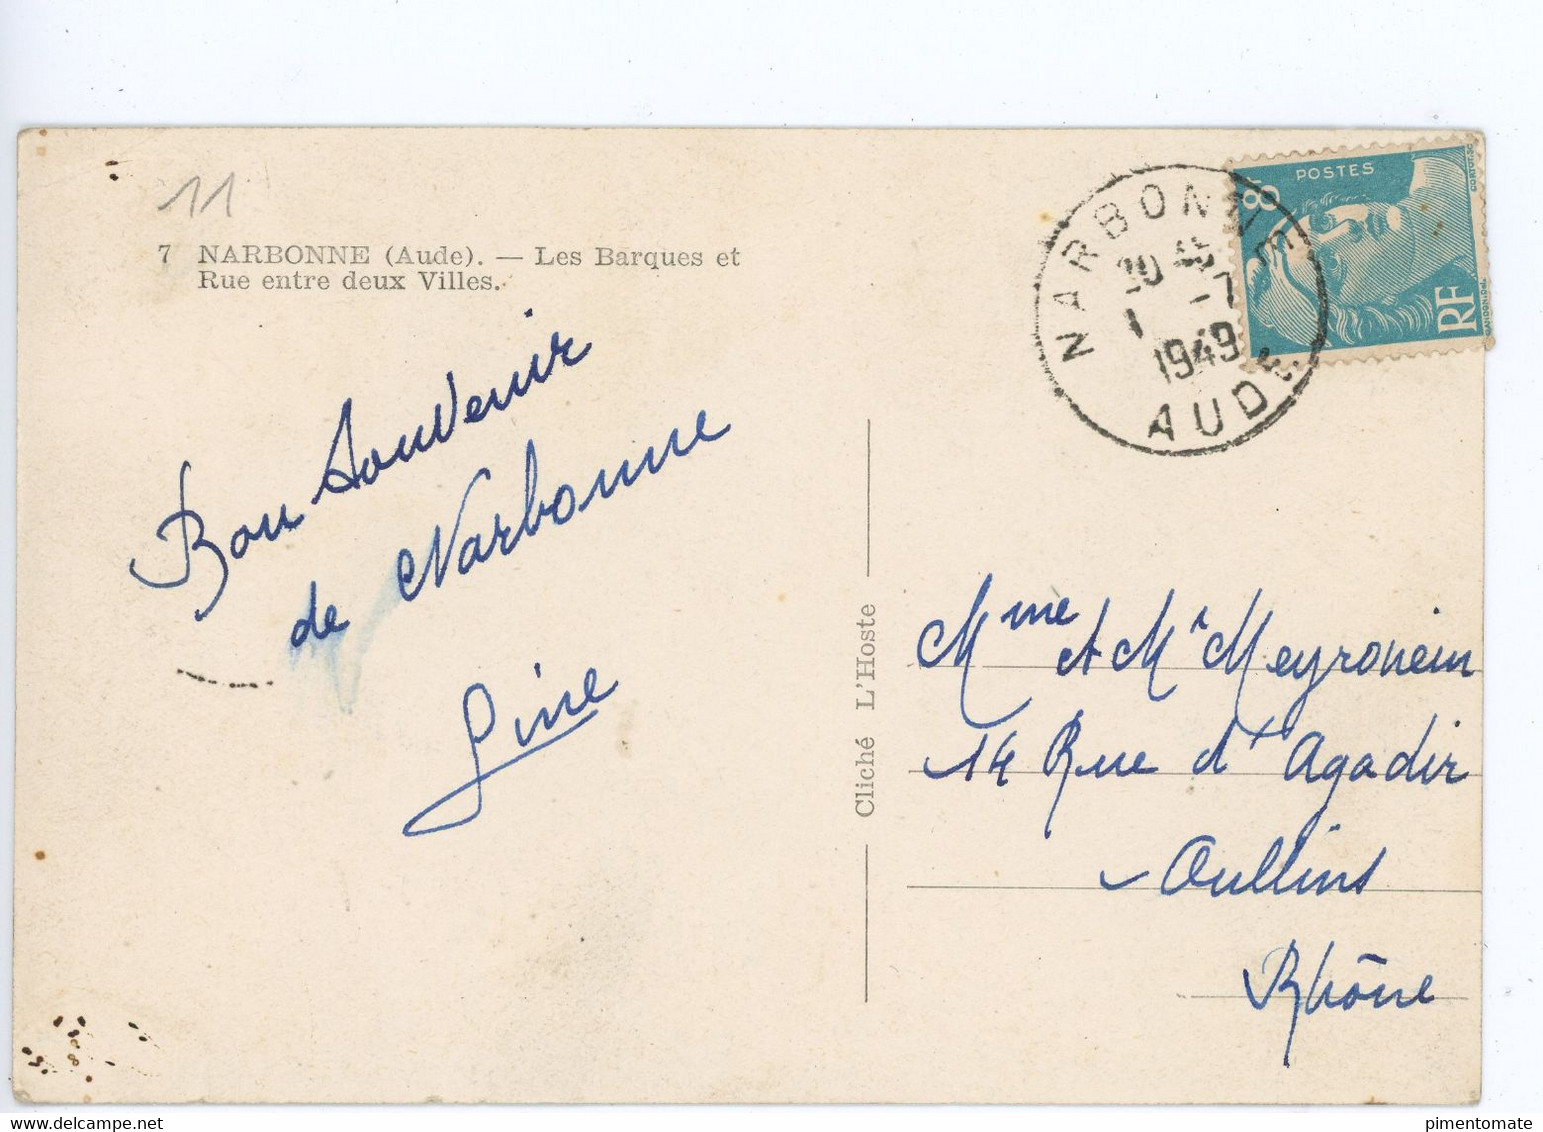 11
7 NARBONNE (Aude). — Les Barques et
Rue entre deux Villes.
Bon Souvenir
de Narbonne
Line
Cliché L'Hoste
NARBONNE
20 45
1 -7
1949
AUDE
8F
POSTES
RF
GANDON.DEL
CORTOT.SC
Mme et Mr Meyronein
14 Rue d'Agadir
Oullins
Rhône
delcampe.net
pimentomate